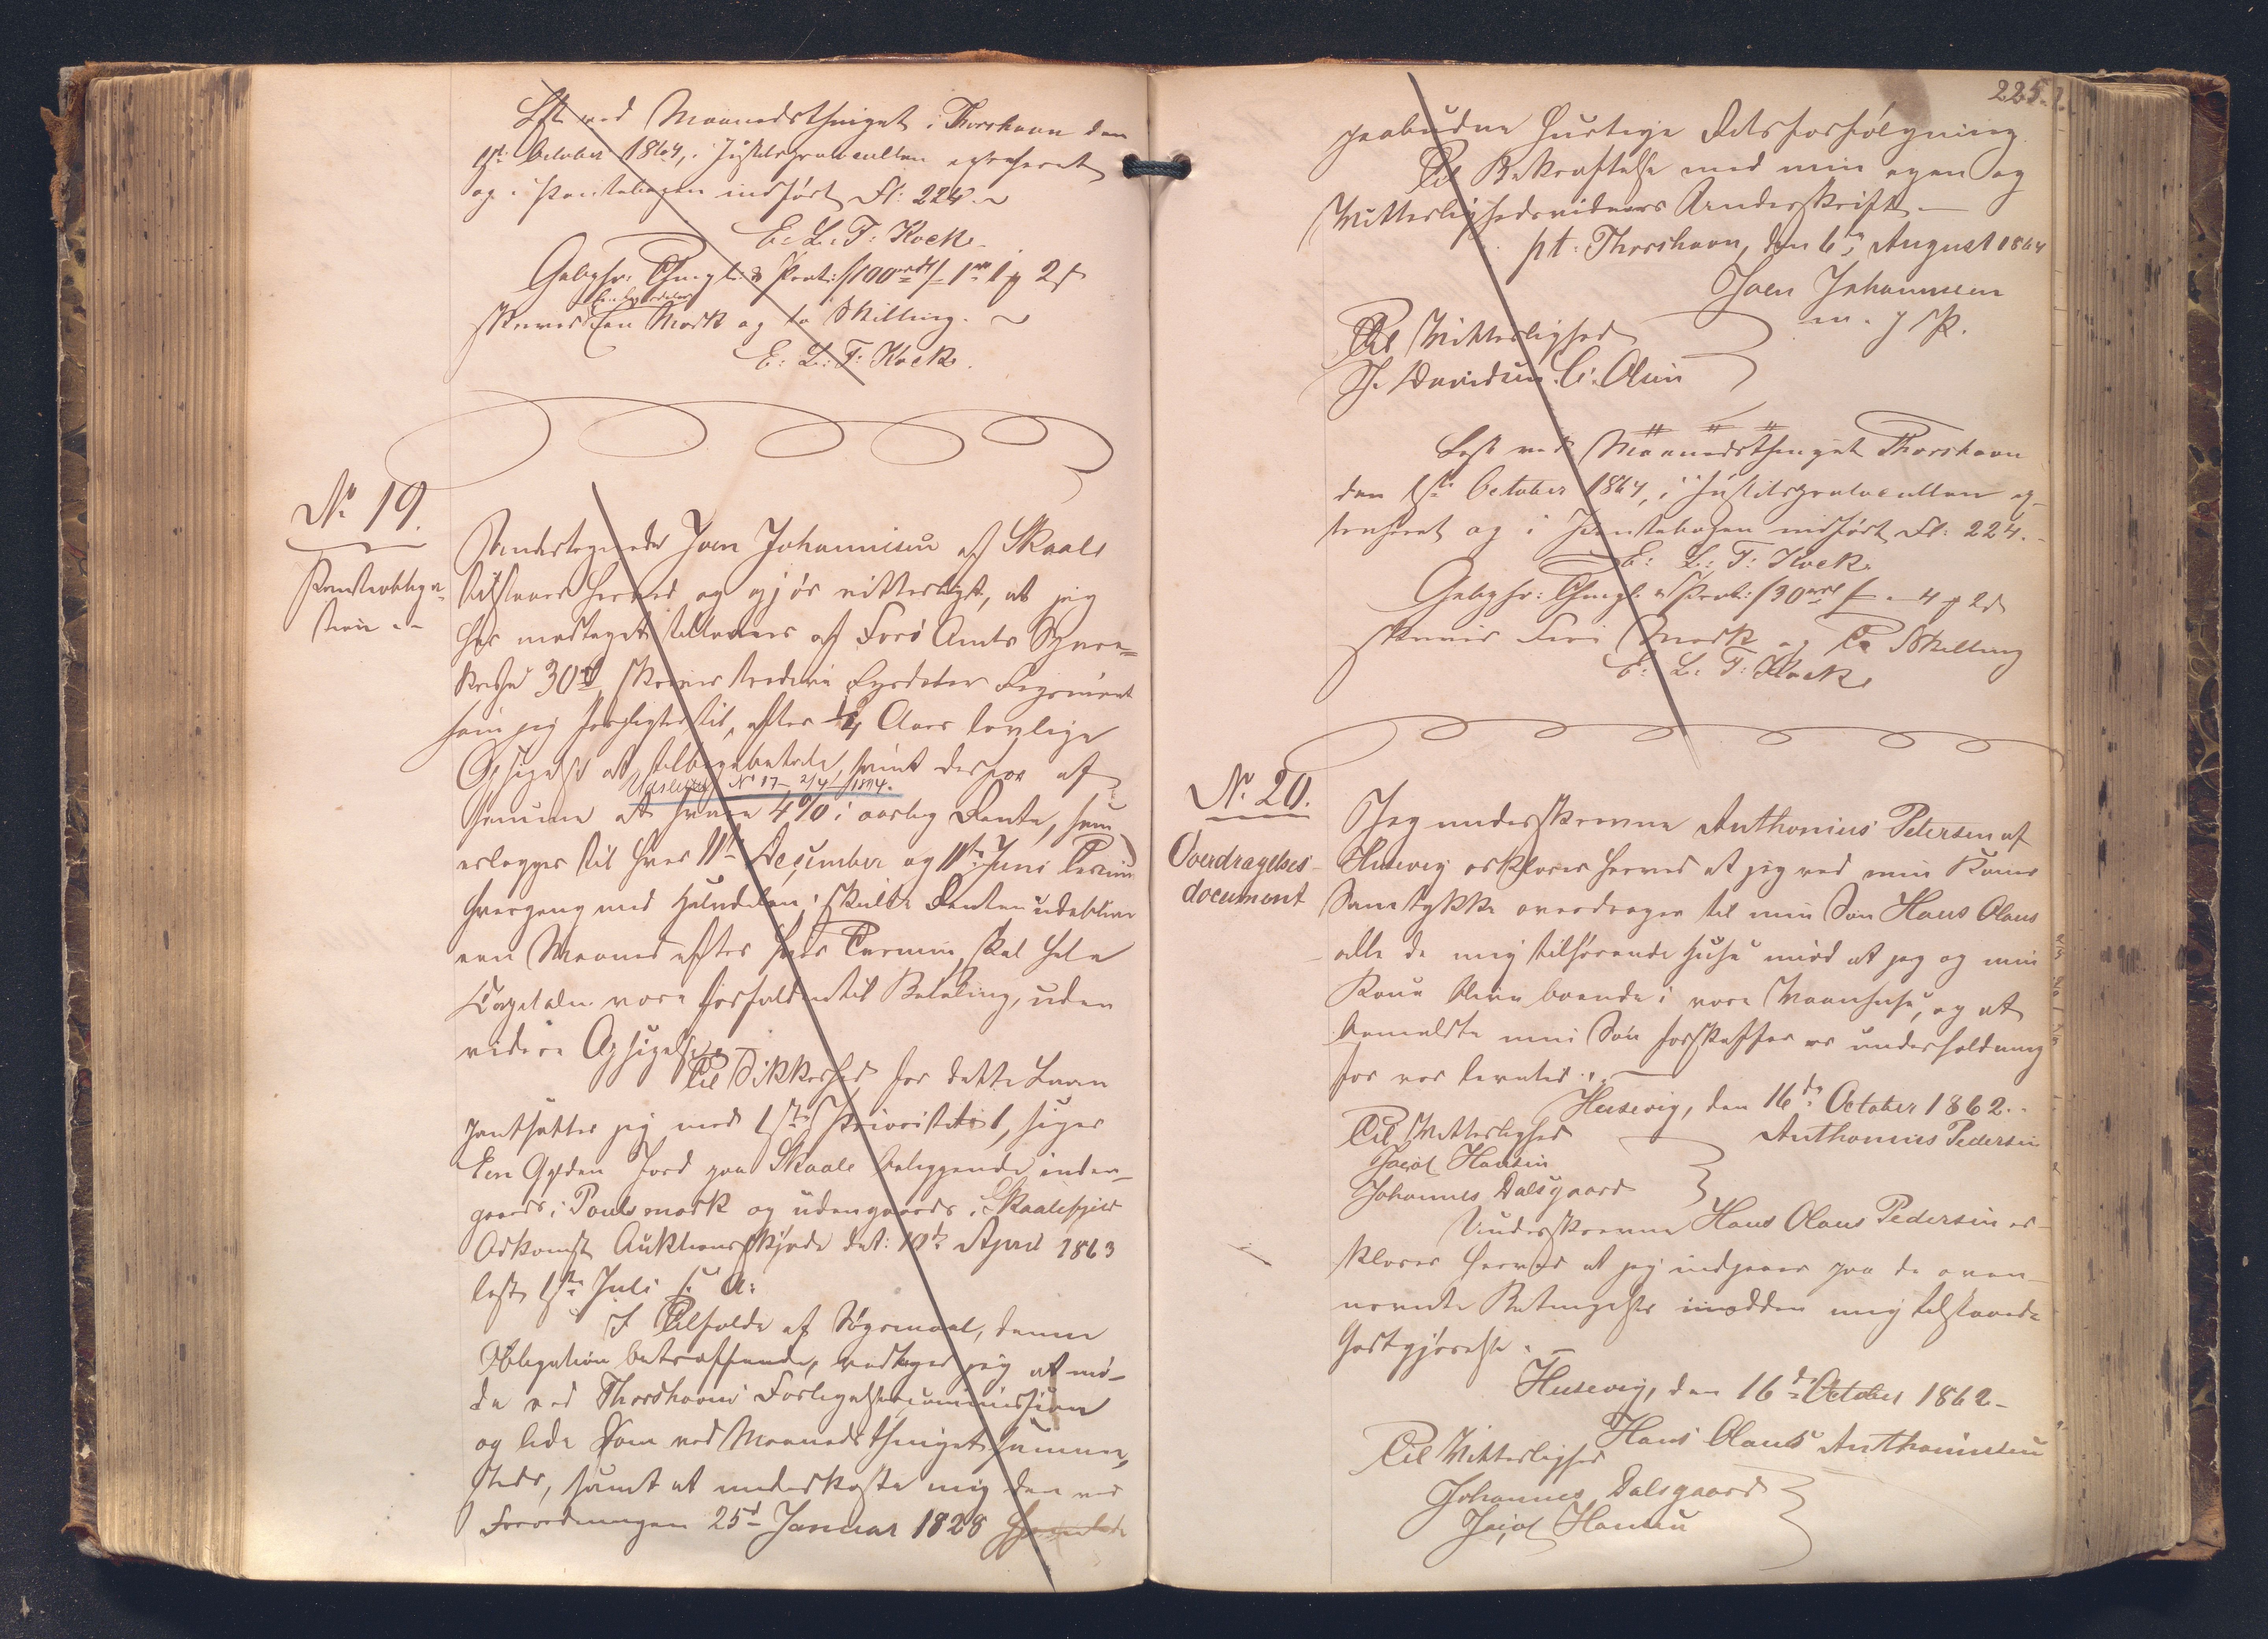 Læst ved Maanedsthinget i Thorshavn den
1ste October 1864, i Justitsprotocollen extraheret
og i Pantebogen indført Fl: 224.
E: L: T: Kock.
Gebyhr: Thingl: & Prot: /100 rdl/ 1 rd 1 ß 2 s
skriver Een Rigsdaler Een Mark og to Skilling.
E: L: T: Kock.
No 19.
Panteobliga-
tion.
Undertegnede Joen Johannisen af Skaale
tilstaaer herved og gjør vitterligt, at jeg
har modtaget tillaans af Færø Amts Spare-
kasse 30 rd, skriver tredive Rigsdaler Rigsmønt
som jeg forpligter til, efter 1/4 Aars lovlige
Opsigelse at tilbagebetale, samt derfor af
Udslettet No 17 - 2/4 1874.
samme at svare 4% i aarlig Rente, som
erlægges til hver 11te December og 11te Juni Termin
hvergang med Halvdelen; skulde Renten udeblive
een Maaned efter hver Termin, skal hele
Capitalen være forfalden til Betaling, uden
videre Opsigelse.
Til Sikkerhed for dette Laan
pantsætter jeg med 1ste Prioritet 1, siger
Een Gylden Jord paa Skaale beliggende inden-
gaards i Pouls mark og udengaards i Skaalefjeld
Adkomst Auktionsskjøde dat: 10de April 1863
læst 1ste Juli s: A:
I Tilfælde af Søgsmaal, denne
Obligation betræffende, vedtager jeg at mø-
de ved Thorshavns Forligelsescommission
og lide Dom ved Maanedsthinget samme-
steds, samt at underkaste mig den ved
Forordningen 25d Januar 1828
225.
paabudne hurtige Retsforfølgning.
Til Bekræftelse med min egen og
Vitterlighedsvidners Underskrift.
pt: Thorshavn, den 6te August 1864
Joen Johannisen
m. f. P.
Til Vitterlighed
H. Davidsen. C: Olsen
Læst ved Maanedsthinget Thorshavn
den 1ste October 1864, i Justitsprotocollen ex-
traheret og i Pantebogen indført Fl: 224.
E: L: T: Kock.
Gebyhr: Thingl: & Prot: /30 rdl/ - 4 ß 2 s
skriver Fire Mark og To Skilling
E: L: T: Kock.
No 20.
Overdragelses-
document
Jeg underskrevne Anthonius Petersen af
Husevig erklærer herved at jeg ved min Kones
Samtykke overdrager til min Søn Hans Olaus
alle de mig tilhørende Huse imod at jeg og min
Kone blive boende i vore Vaanhuse, og at
bemeldte min Søn forskaffer os underholdning
for vor levetid.
Husevig, den 16de October 1862.
Anthonius Pedersen
Til Vitterlighed
Jacob Hansen
Johannes Dalsgaard
Underskrevne Hans Olaus Pedersen er-
klærer herved at jeg indgaaer paa de oven-
nævnte Betingelser imod den mig tilstaaede
Godtgjørelse.
Husevig, den 16de October 1862.
Hans Olaus Anthoniusen
Til Vitterlighed
Johannes Dalsgaard
Jacob Hansen